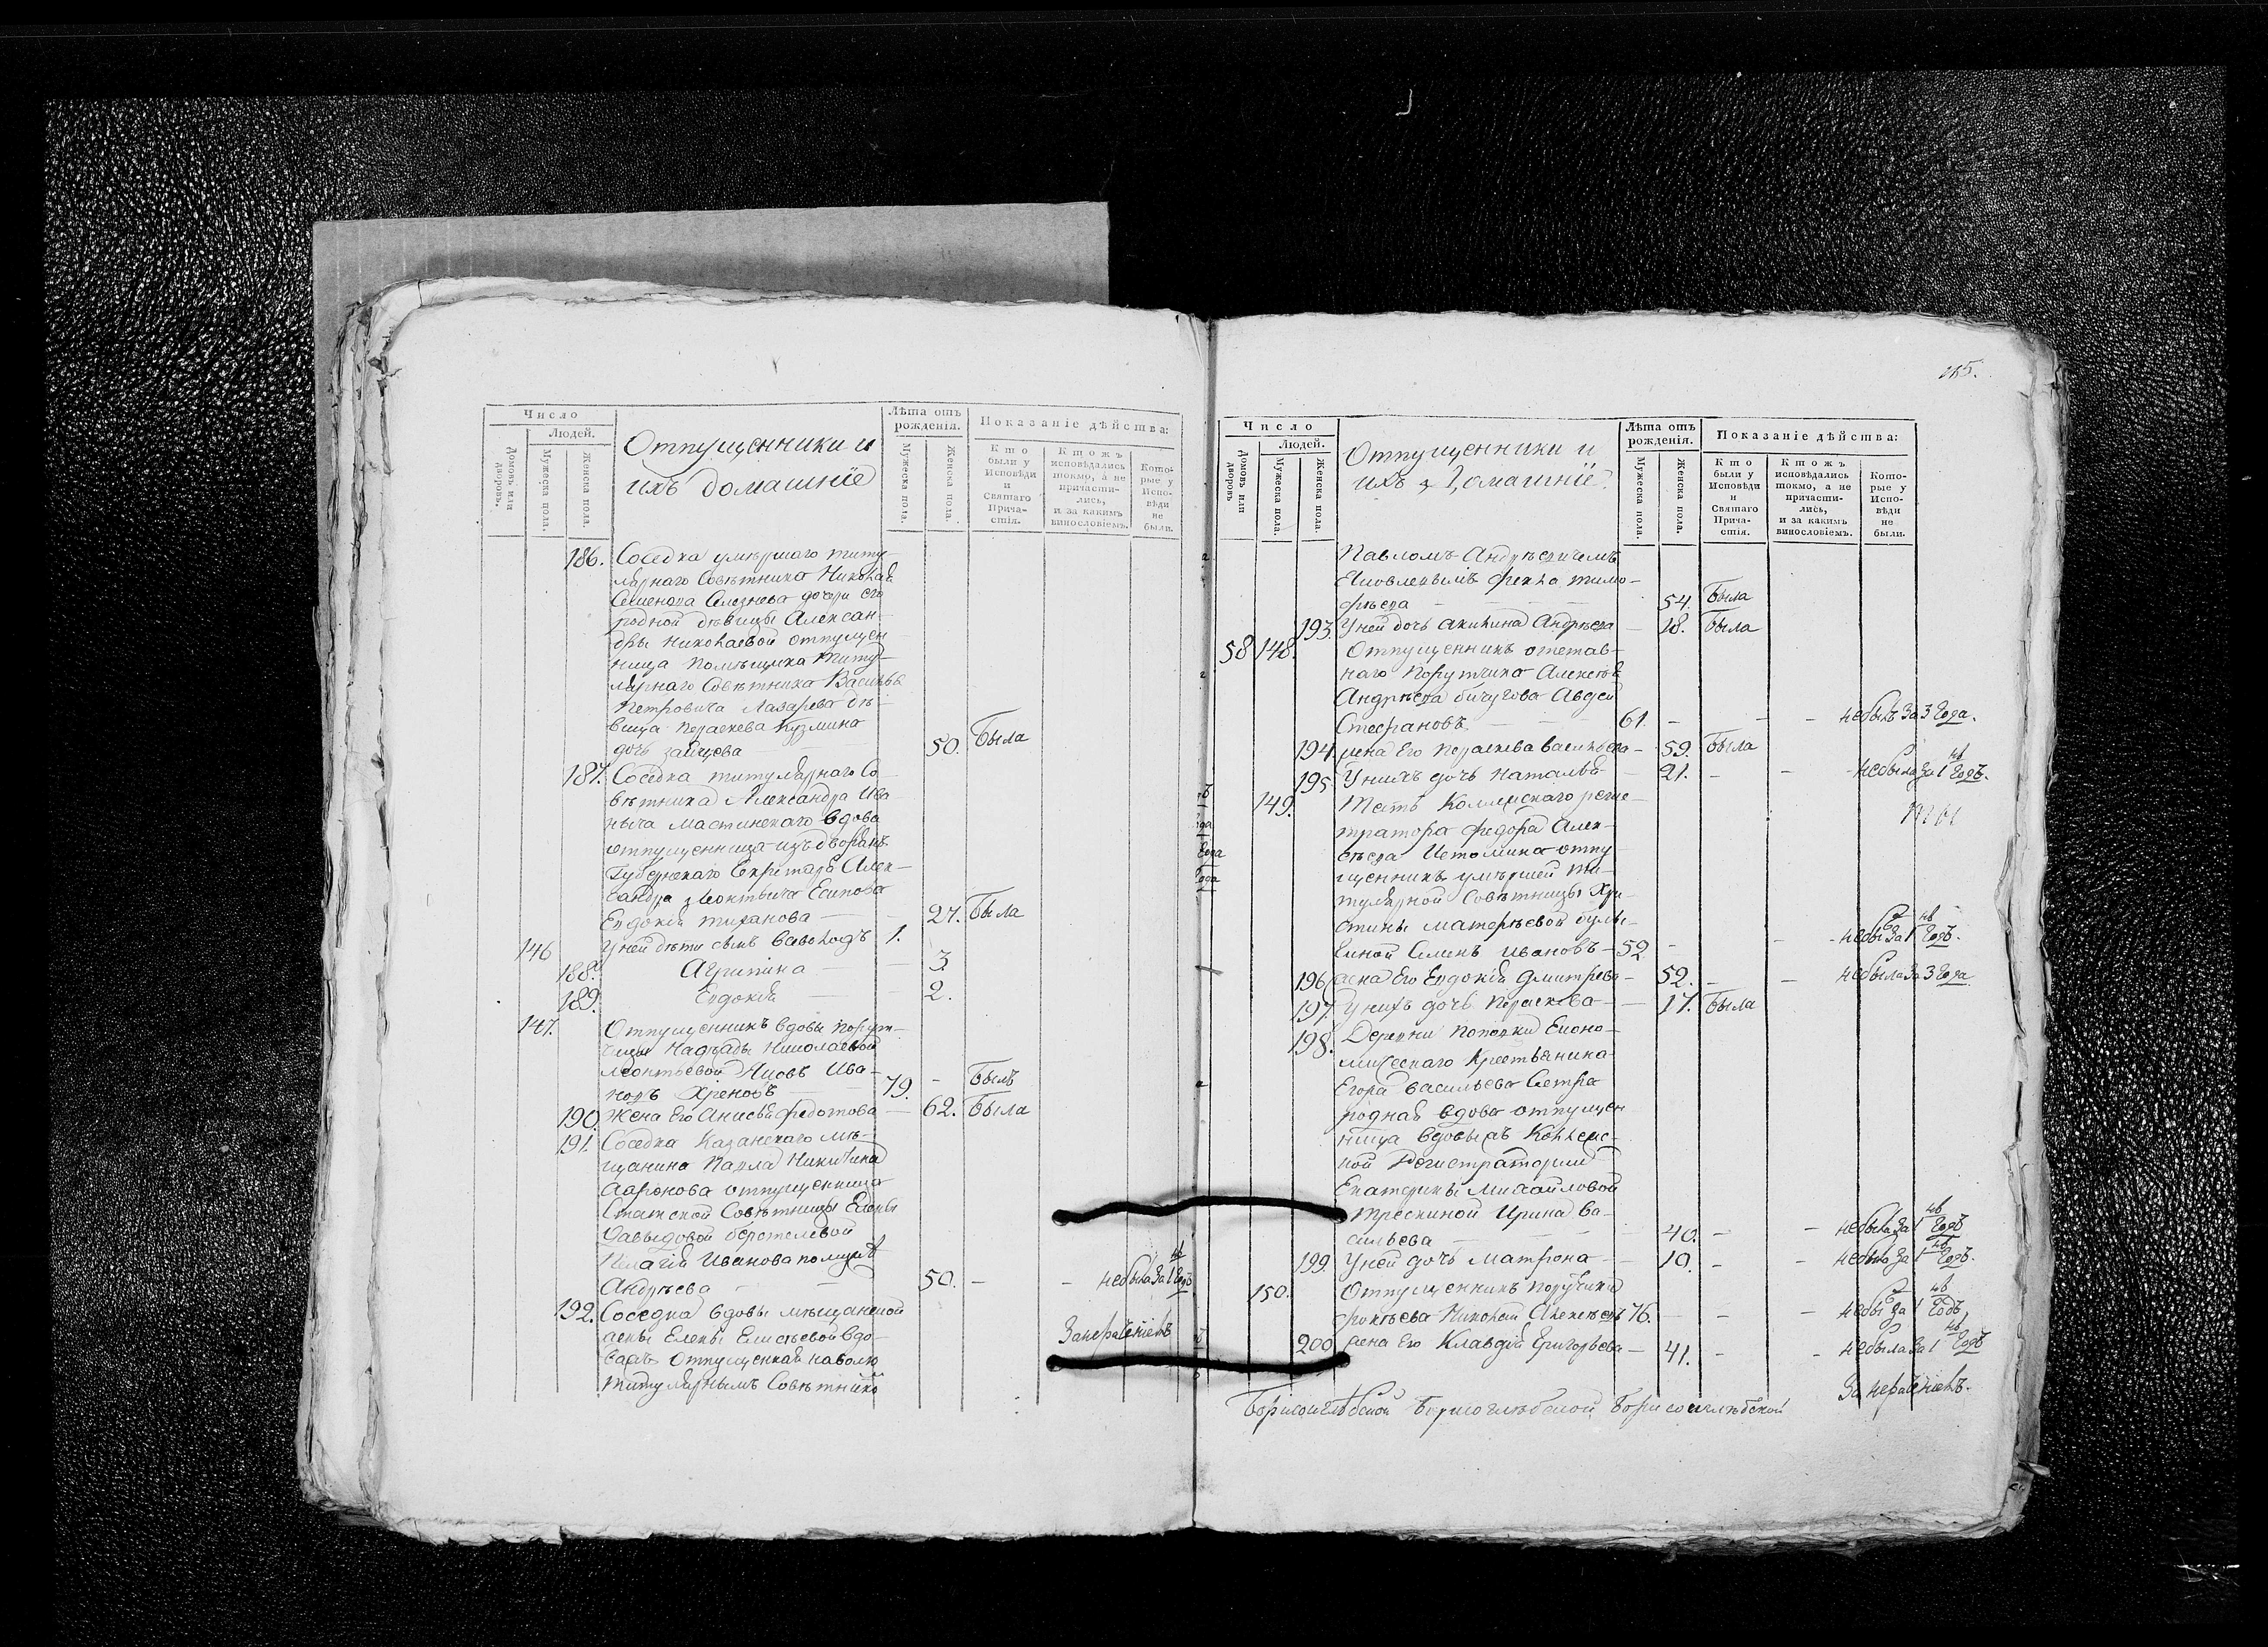 Число
Людей.
Домовъ или дворовъ.
Мужеска пола.
Женска пола.
Отпущенники и
ихъ домашніе
Лѣта отъ рожденія.
Мужеска пола.
Женска пола.
Показаніе дѣйства:
Кто были у Исповѣди и Святаго Прича-стія.
Ктожъ исповѣдались токмо, а не причасти-лись, и за какимъ винословіемъ.
Кото-рые у Испо-вѣди не были.
186. Соседка умершаго титу-
лярнаго Совѣтника Николая
Семенова Селезнева дочери его
родной дѣвицы Алексан-
дры Николаевой отпущен
ница помѣщика титу-
лярнаго Совѣтника Василья
Петровича Лазарева дѣ-
вица Параскева Кузмина
дочь Зайцева 50. Была
187. Соседка титулярнаго Со-
вѣтника Александра Ива
ныча Мастинскаго вдова
отпущенница изъ дворянъ
Губернскаго Секретаря Алек-
сандра Леонтьича Есипова
Евдокія Тиханова 27. Была
146 У ней дѣти сынъ Всеволодъ 1.
188. Агрипина 3
189. Евдокія 2.
147. Отпущенникъ вдовы поруч-
чицы Надежды Николаевой
Леонтьевой Яковъ Ива-
новъ Хреновъ 79. - Былъ
190. Жена Его Анисья Федотова 62. Была
191. Соседка Казанскаго мѣ-
щанина Павла Никитина
Ааронова отпущенница
Статской Совѣтницы Елены
Давыдовой
Пелагія Иванова по мужѣ
Андрѣева 50. - - небыла за 1й Годъ.
192. Соседка вдовы мѣщанской
жены Елены Елисѣевой вдо-
ва отпущенная на волю
титулярнымъ Совѣтнико
За нераденіемъ
125.
Число
Людей.
Домовъ или дворовъ
Мужеска пола.
Женска пола.
Отпущенники и
ихъ Домашніе.
Лѣта отъ рожденія.
Мужеска пола.
Женска пола.
Показаніе дѣйства:
Кто были у Исповѣди и Святаго Прича-стія.
Ктожъ исповѣдались токмо, а не причасти-лись, и за какимъ винословіемъ.
Кото-рые у Испо-вѣди не были.
Павломъ Андрѣевичемъ
Яковлевымъ Фекла Тимо-
фѣева 54. Была
193. У ней дочь Акилина Андрѣева 18. Была
58 148. Отпущенникъ отстав-
наго Порутчика Алексѣя
Андрѣева Бичугова Авдей
Стефановъ 61. - - - небылъ за 3 Года.
194 жена Его Параскева Васильева 59. Была
195 У нихъ дочь Наталья 21. - - небыла за 1й Годъ.
149. Тесть Коллежскаго регис-
тратора Федора Алек-
сѣева Истомина отпу-
щенникъ умершей Ти-
тулярной Совѣтницы Хри-
стины Матфѣевой
Семенъ Ивановъ 52 - - - небылъ за 1й Годъ.
196 жена Его Евдокія Дмитрева 52. - - небыла за 3 Года
197 У нихъ дочь Параскева 17. Была
198. Деревни Поповки Еконо-
мическаго Крестьянина
Егора Васильева Сестра
родная вдова отпущен
ница вдовы Коллежс-
кой Регистраторши
Екатерины Михайловой
Трескиной Ирина Ва-
сильева 40. - - небыла за 1й Годъ
199. У ней дочь Матрона 10. - - небыла за 1й Годъ.
150. Отпущенникъ Поручика
Николай Алексѣевъ 76. - - небылъ за 1й Годъ,
200 жена Его Клавдія Григорьева 41. - - небыла за 1й Годъ
За нераденіемъ.
Борисоглѣбской Борисоглѣбской Борисоглѣбской